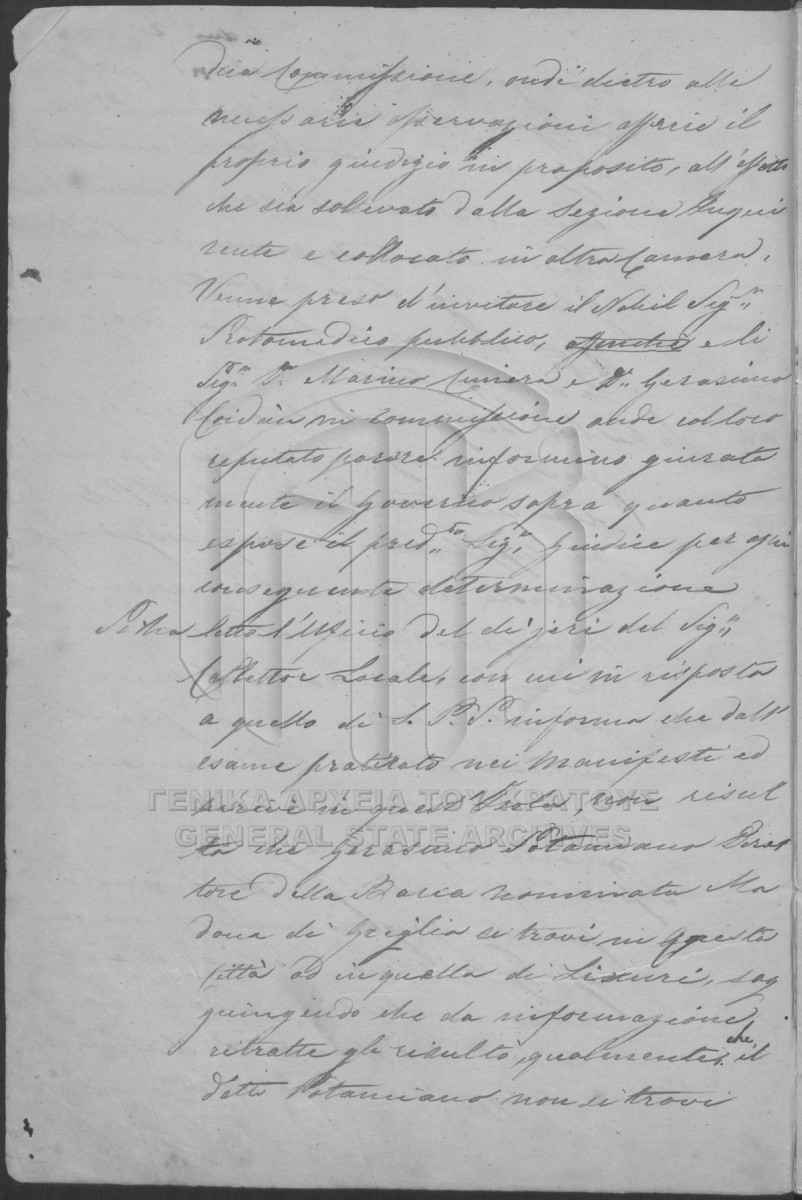 una Commissione, ond'dietro alle
necessarie osservazioni offrir il
proprio giudizio in proposito, all'effetto
che sia sollevato dalla Sezione Inqui
rente e collocato in altra Camera,
Venne preso d'invitare il Nobil Sig.r
Protomedico pubblico, e li
Sig.ri D.r Marino e D.r Gerasimo
in Commissione onde col loro
reputato parere informino giurata
mente il Governo sopra quanto
espose il pred.to Sig.r Giudice per ogni
conseguente determinazione
letto l'Uffizio del di jeri del Sig.r
Collettor Locale, con cui in risposta
a quello di S. P. S. informa che dall'
esame praticato nei Manifesti ed
in quest'Isola, non risul
ta che Gerasimo Potamiano Diret
tore della Barca nominata Ma
dona di Griglia si trovi in questa
Città od in quella di Lixuri, sog
giungendo che da informazione
ritratte gli risultò, qualmente, che il
detto Potamiano non si trovi
ΓΕΝΙΚΑ ΑΡΧΕΙΑ ΤΟΥ ΚΡΑΤΟΥΣ
GENERAL STATE ARCHIVES